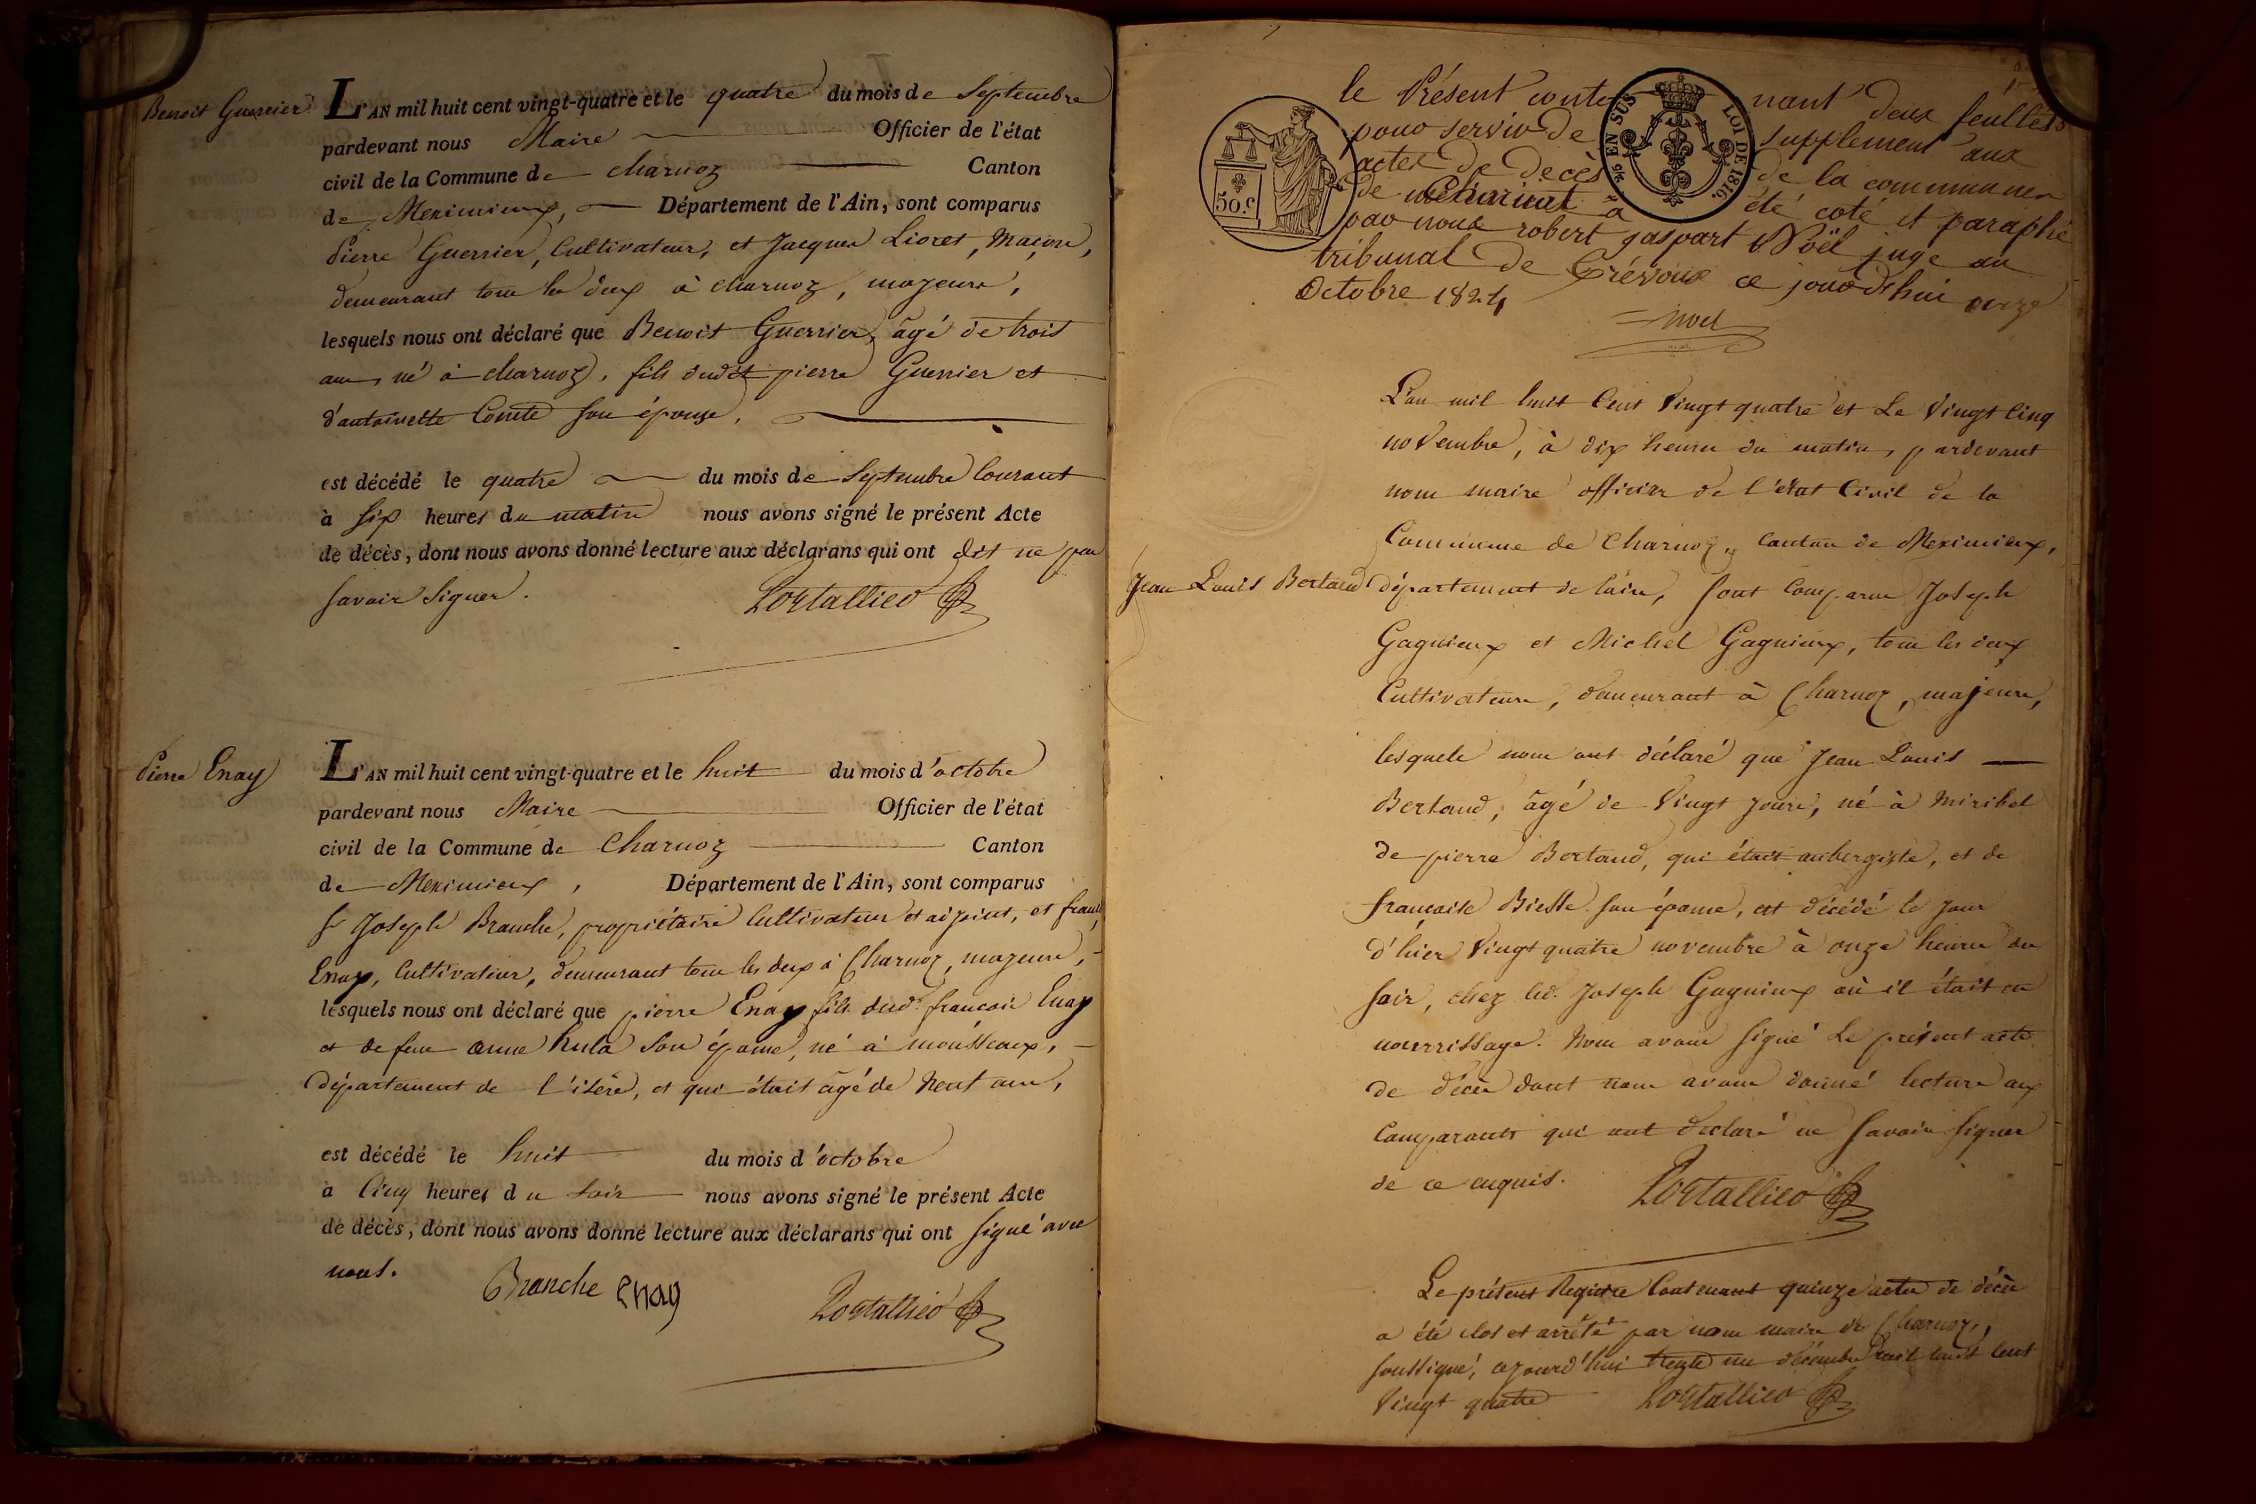 Benoit Guerrier
L'AN mil huit cent vingt-quatre et le quatre du mois de Septembre
pardevant nous Maire Officier de l'état
civil de la Commune de charnoz Canton
de Meximieux, Département de l'Ain, sont comparus
Pierre Guerrier, Cultivateur, et Jacques Lioret, Maçon,
demeurant tous les deux à charnoz, majeurs,
lesquels nous ont déclaré que Benoit Guerrier, âgé de trois
ans, né à charnoz, fils dudit pierre Guerrier et
d'antoinette Comte son épouse,
est décédé le quatre du mois de Septembre Courant
à six heures du matin nous avons signé le présent Acte
de décès, dont nous avons donné lecture aux déclarans qui ont dit ne pas
savoir signer.
Portallier
Pierre Enay
L'AN mil huit cent vingt-quatre et le huit du mois d'octobre
pardevant nous Maire Officier de l'état
civil de la Commune de Charnoz Canton
de Meximieux, Département de l'Ain, sont comparus
Sr Joseph Branche, propriétaire Cultivateur et adjoint, et
Enay, Cultivateur, demeurant tous les deux à Charnoz, majeurs,
lesquels nous ont déclaré que pierre Enay fils dud. francois Enay
et de feue anne son épouse, né à
département de l'isère, et qui était âgé de ans,
est décédé le huit du mois d'octobre
à Cinq heures du soir nous avons signé le présent Acte
de décès, dont nous avons donné lecture aux déclarans qui ont signé avec
nous.
Branche Enay
Portallier
le Présent contenant deux feuillets
pour servir de supplement aux
actes de decès de la commune
de Charnoz à été coté et paraphé
par nous robert gaspart Noël juge au
tribunal de Trévoux ce jourdhui onze
Octobre 1824
Noel
50.c
EN SUS
LOI DE 1816.
L'an mil huit Cent Vingt quatre et Le Vingt Cinq
novembre, à dix heures du matin, pardevant
nous maire officier de l'état Civil de la
Commune de Charnoz, Canton de Meximieux,
Jean Louis Bertaud
département de l'ain, sont Comparus Joseph
Gagnieux et Michel Gagnieux, tous les deux
Cultivateurs, demeurant à Charnoz, majeurs,
lesquels nous ont déclaré que Jean Louis
Bertaud, âgé de Vingt jours, né à Miribel
de pierre Bertaud, qui était aubergiste, et de
francoise Biesse son épouse, est décédé le jour
d'hier Vingt quatre novembre à onze heures du
soir, chez led. Joseph Gagnieux où il était en
nourrissage. Nous avons signé Le présent acte
de décès dont nous avons donné lecture aux
Comparants qui ont declaré ne savoir signer
de ce enquis.
Portallier
Le présent Registre Contenant quinze actes de décès
a été clos et arrêté par nous maire de Charnoz,
soussigné, cejourd'hui trente un décembre mil huit Cent
Vingt quatre
Portallier